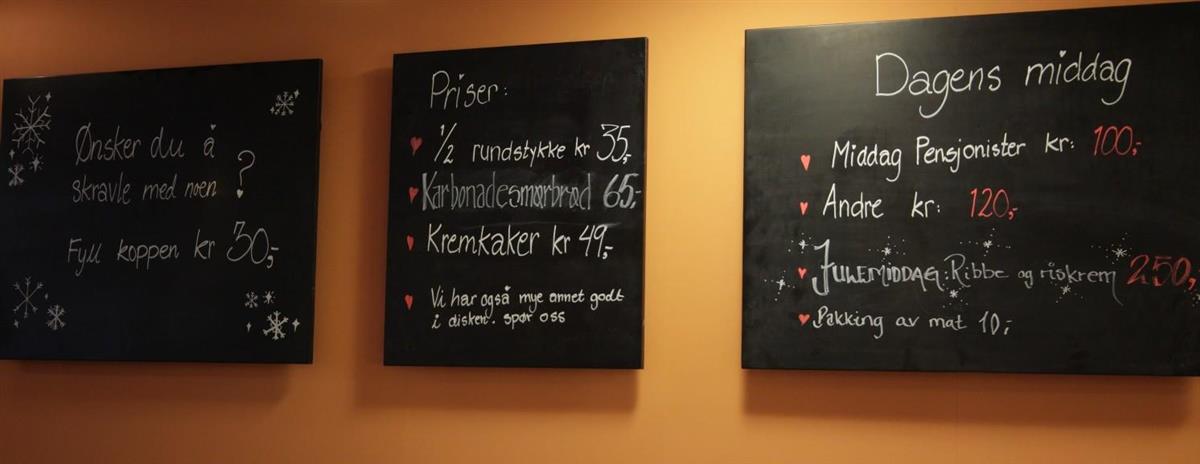 Ønsker du å
skravle med noen ?
Fyll koppen kr 30,-
Priser:
1/2 rundstykke kr 35,-
Karbonadesmørbrød 65,-
Kremkaker kr 49,-
Vi har også mye annet godt
i disken. spør oss
Dagens middag
Middag Pensjonister kr: 100,-
Andre kr: 120,-
JULEMIDDAG: Ribbe og riskrem 250,-
Pakking av mat 10,-